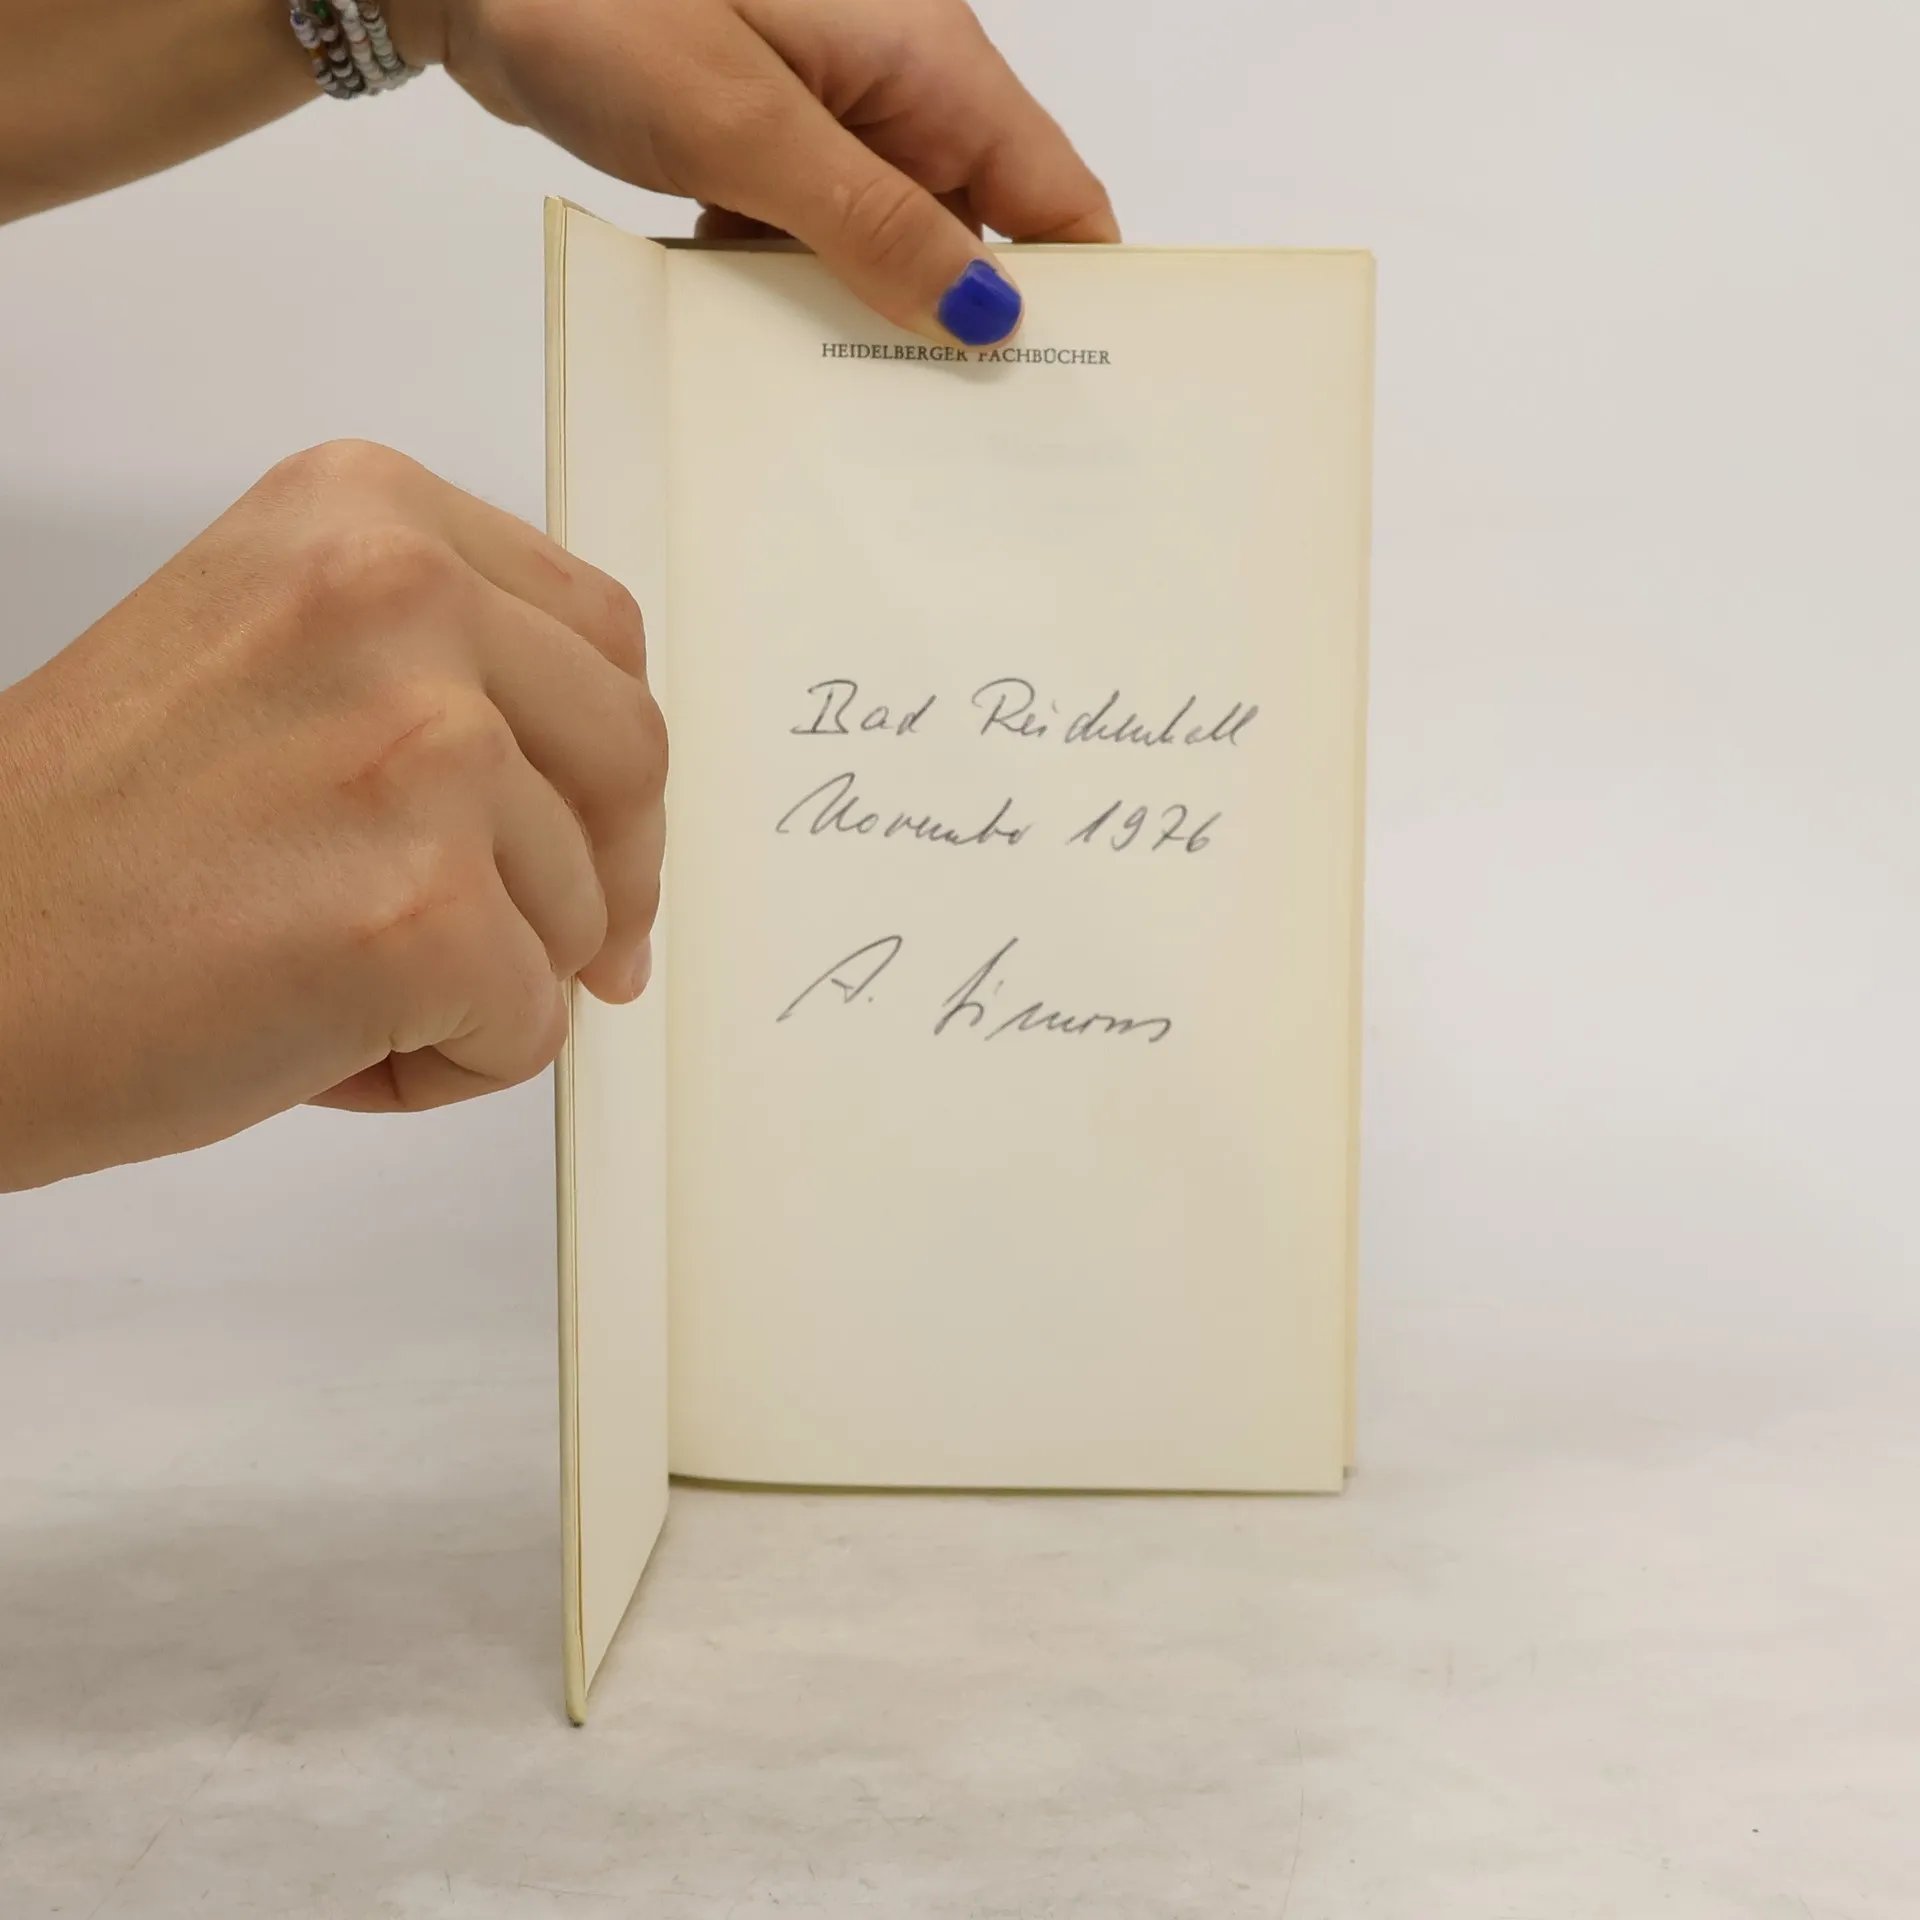 HEIDELBERGER FACHBÜCHER
Bad Reichenhall
November 1976
A. Simons